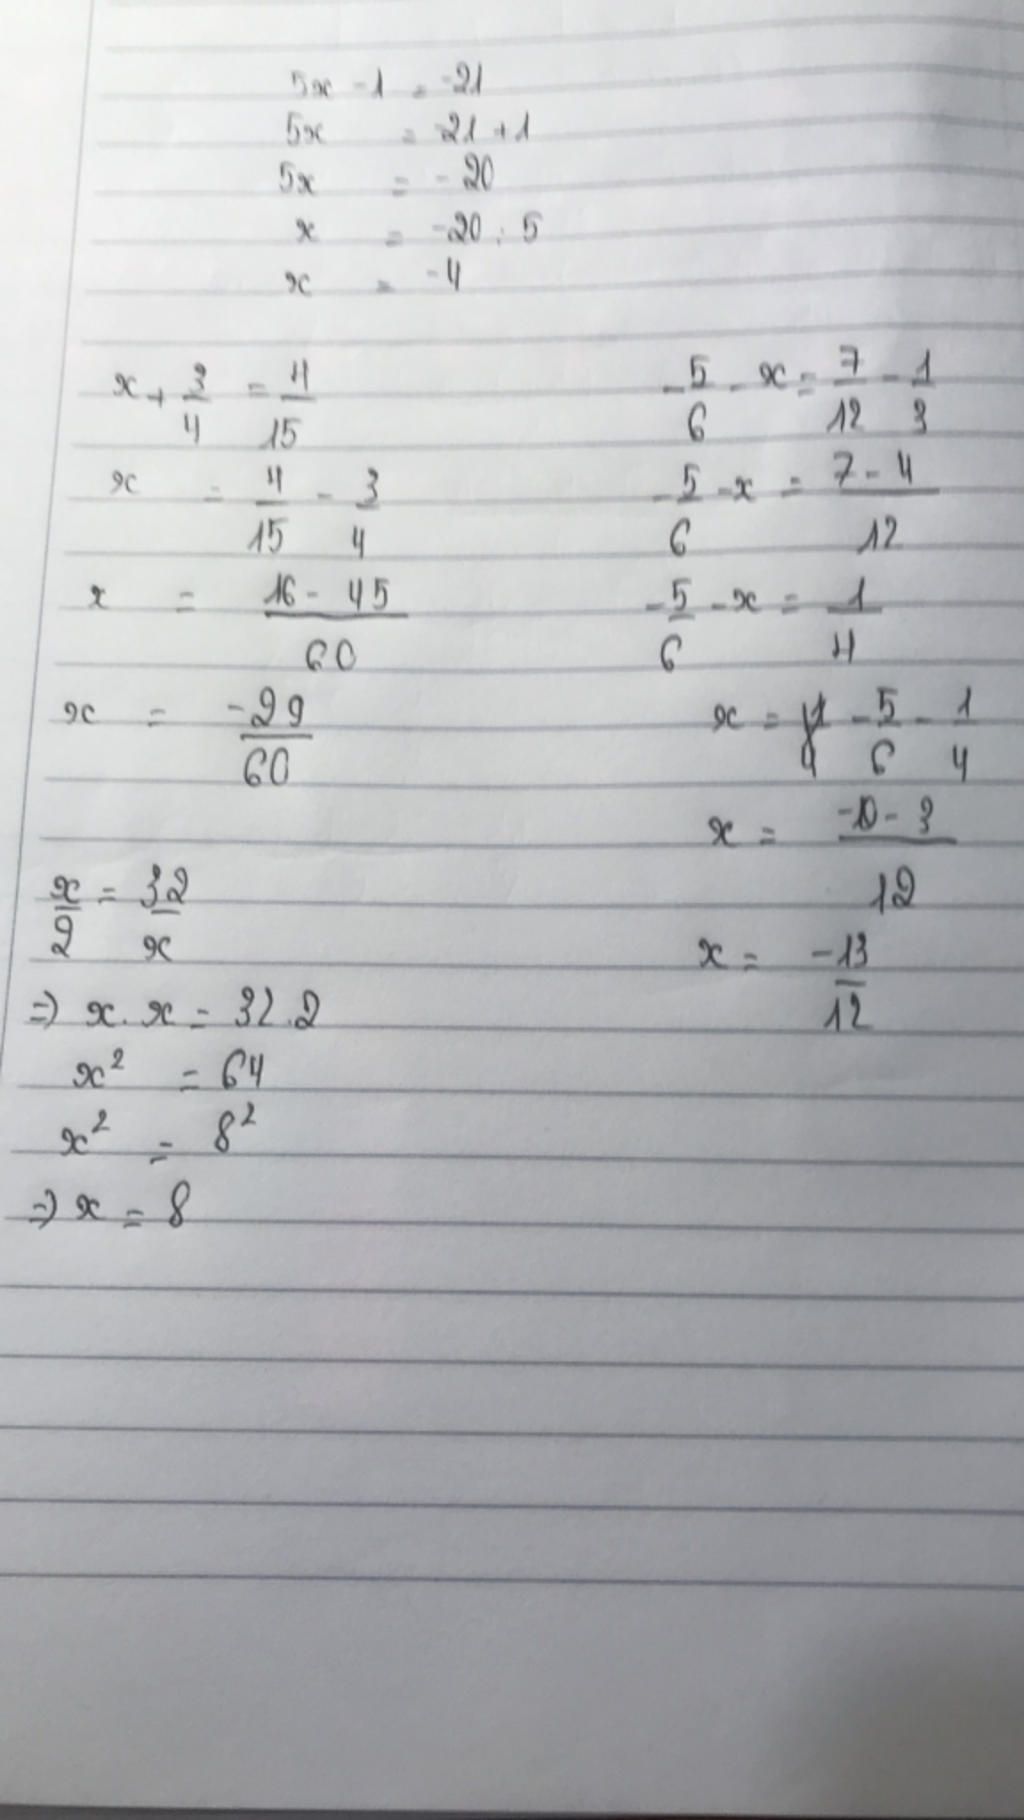 5x - 1 = -21
5x = -21 + 1
5x = -20
x = -20 : 5
x = -4
x + 3/4 = 4/15
x = 4/15 - 3/4
x = 16 - 45/60
x = -29/60
x/2 = 32/x
=> x . x = 32 . 2
x² = 64
x² = 8²
=> x = 8
-5/6 - x = 7/12 - 1/3
-5/6 - x = 7 - 4/12
-5/6 - x = 1/4
x = -5/6 - 1/4
x = -10 - 3/12
x = -13/12